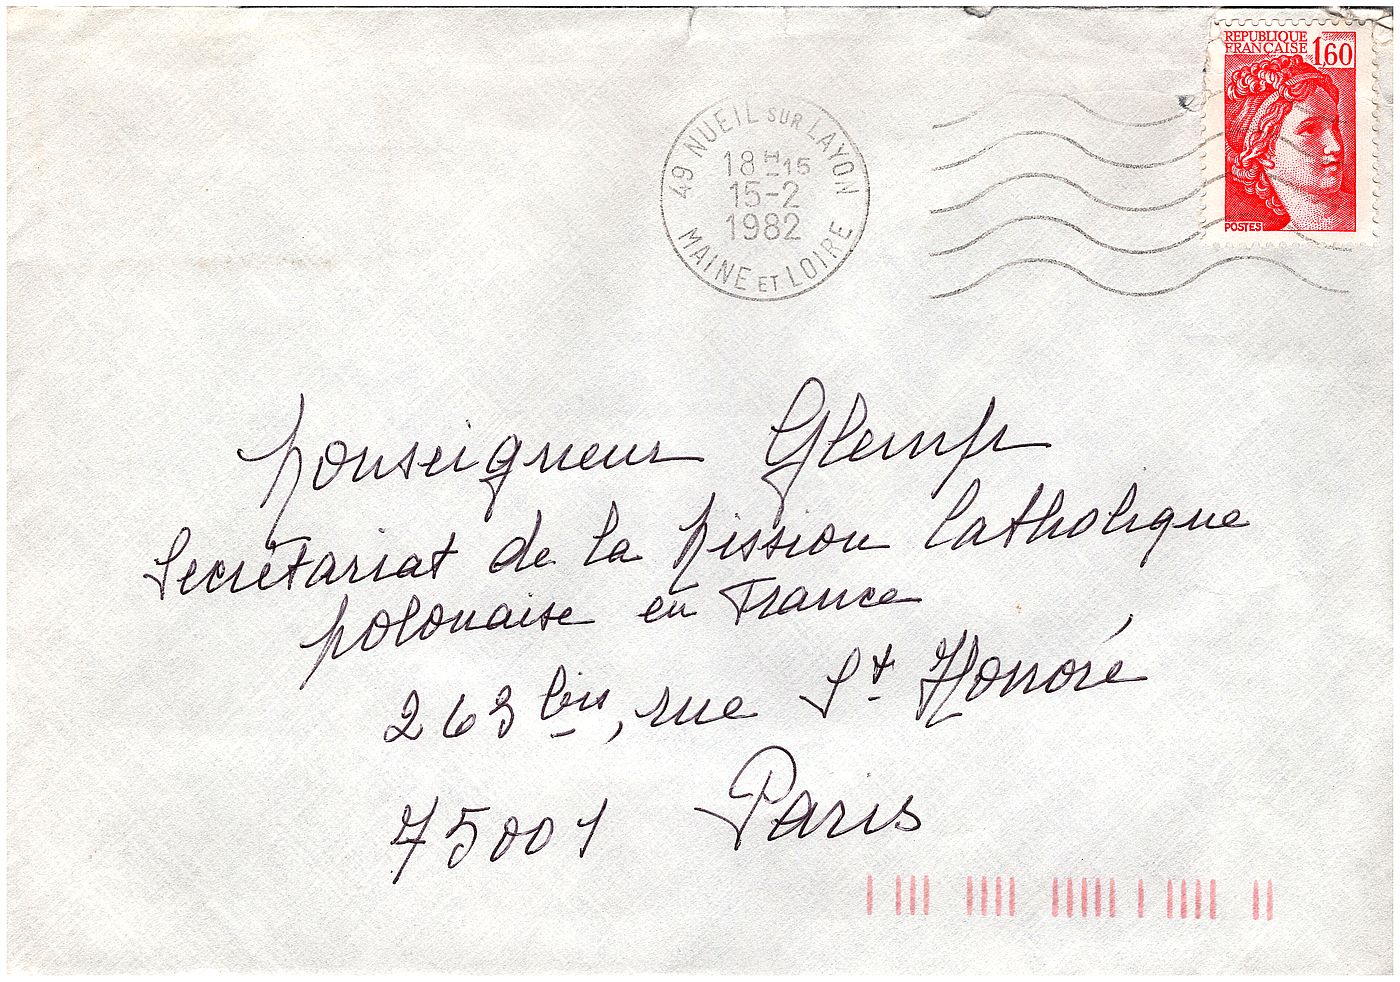 REPUBLIQUE
FRANÇAISE 1,60
POSTES
49 NUEIL SUR LAYON
18H15
15-2
1982
MAINE ET LOIRE
Monseigneur Glemp
Secrétariat de la Mission Catholique
polonaise en France
263 bis, rue St Honoré
75001 Paris